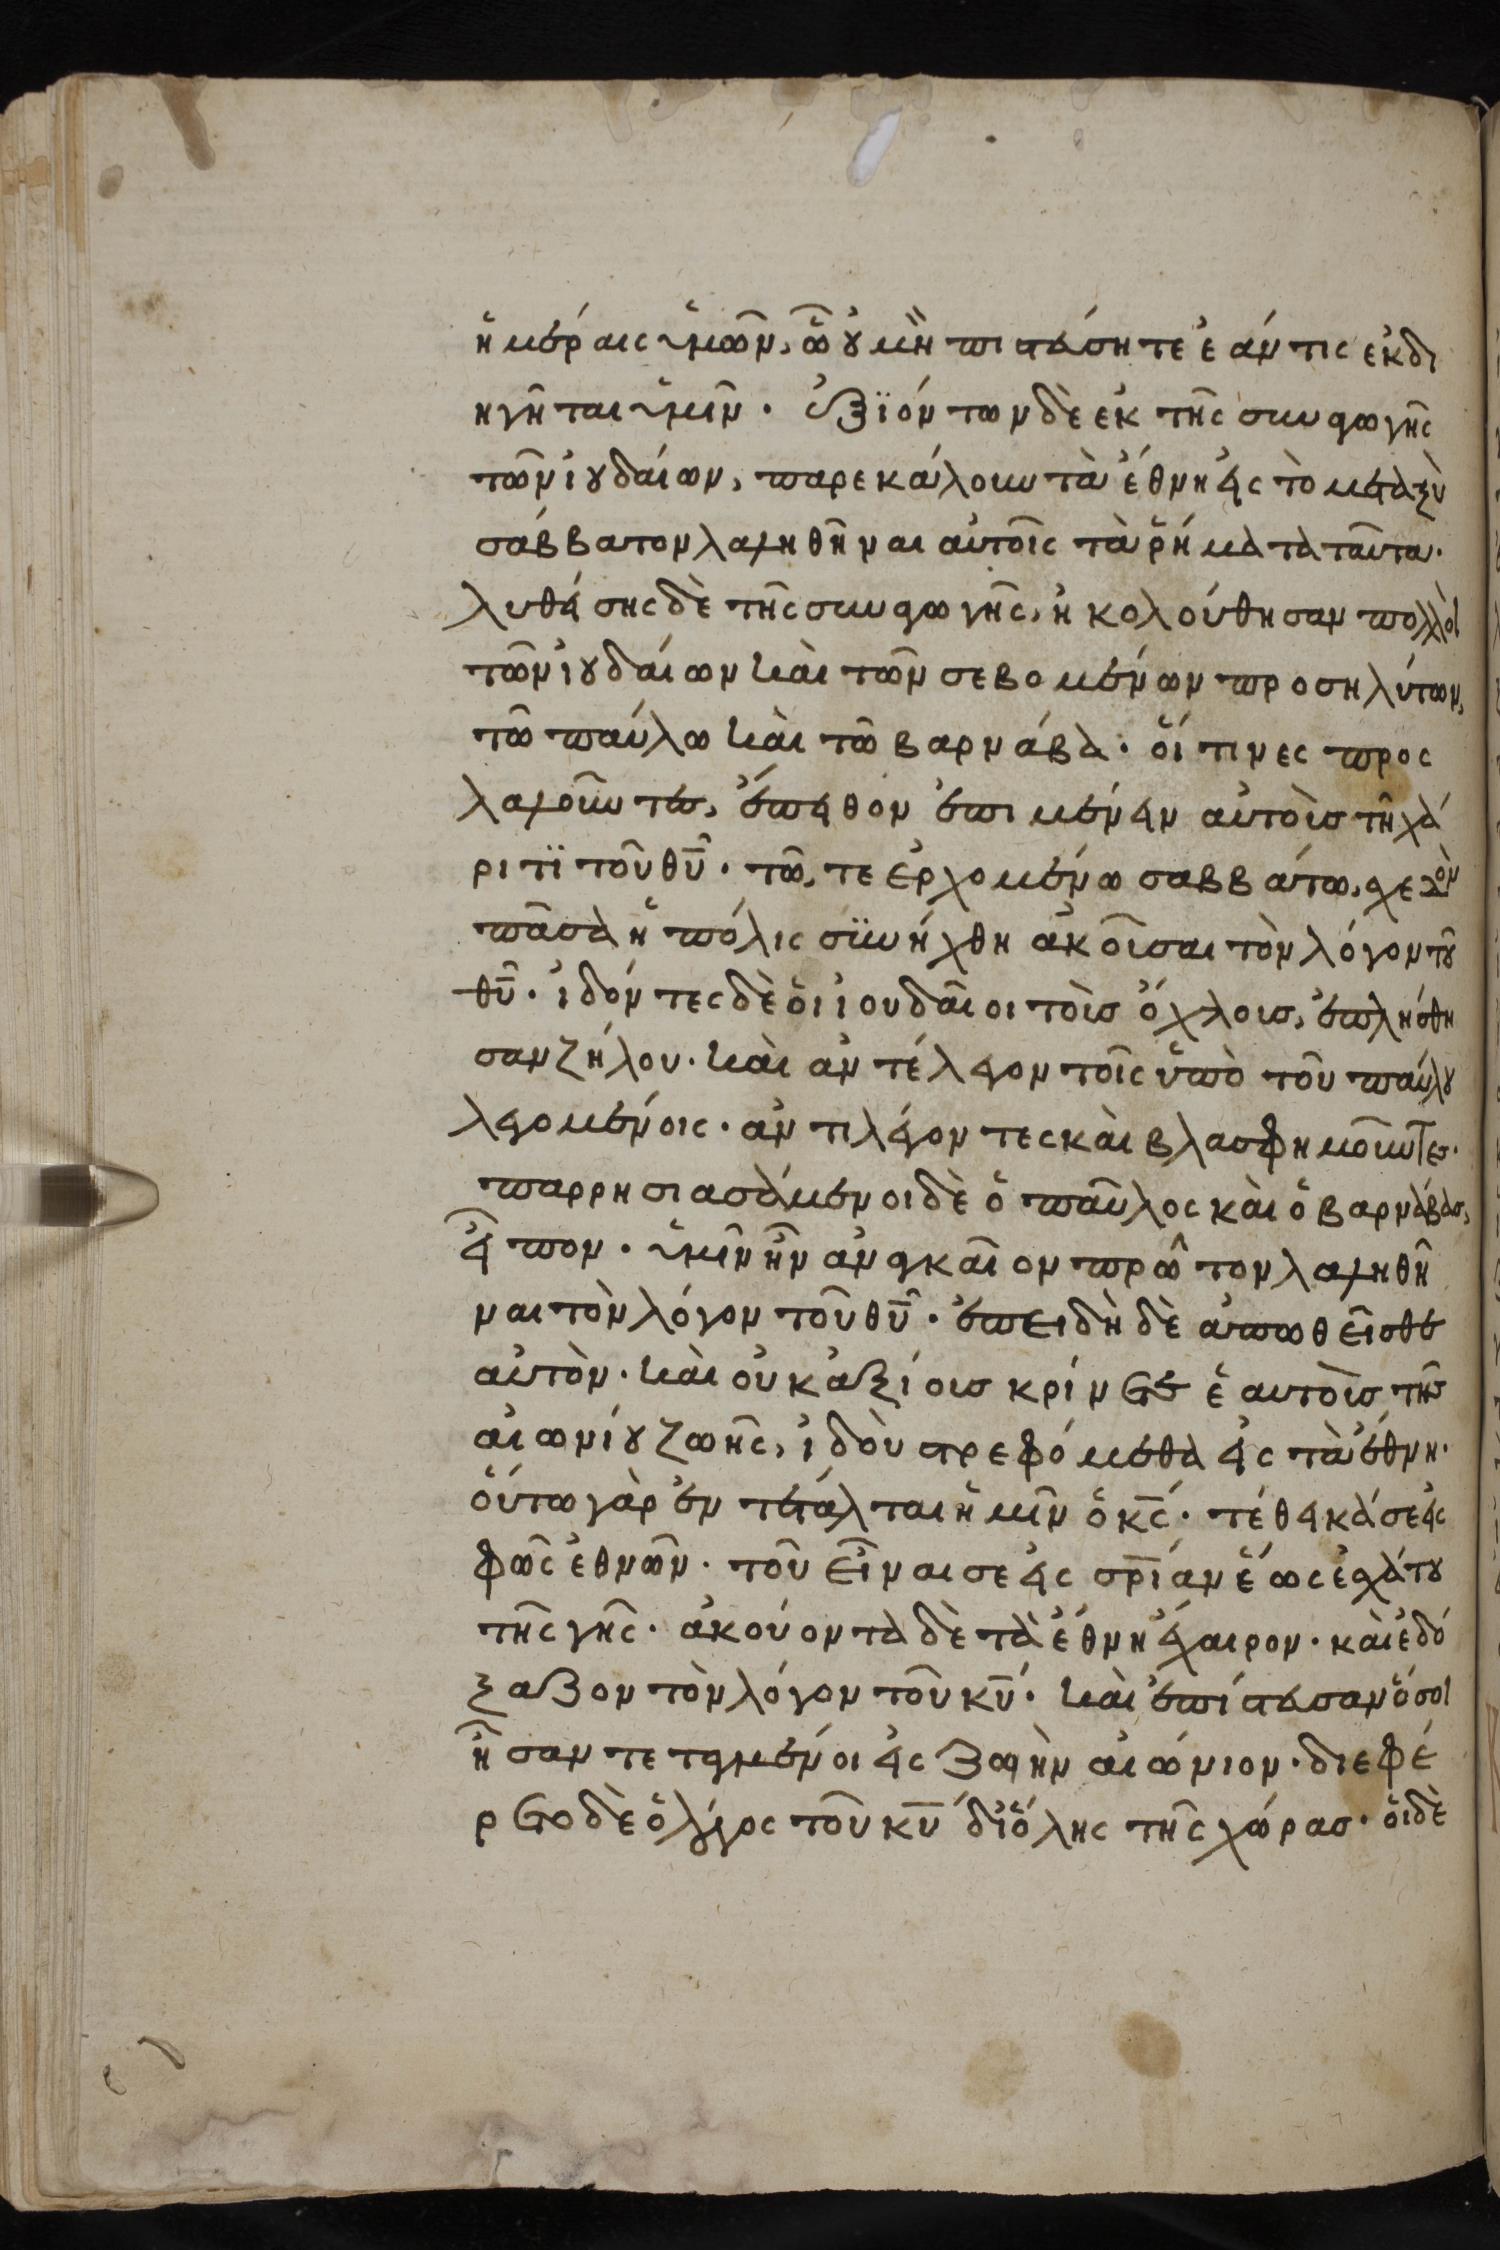 ἡμέραις ὑμῶν, ᾧ οὐ μὴ πιστεύσητε ἐάν τις ἐκδι
ηγῆται ὑμῖν. ἐξϊόντων δὲ ἐκ τῆς συναγωγῆς
τῶν ἰουδαίων, παρεκάλουν τὰ ἔθνη εἰς τὸ μεταξὺ
σάββατον λαληθῆναι αὐτοῖς τὰ ῥήματα ταῦτα.
λυθείσης δὲ τῆς συναγωγῆς, ἠκολούθησαν πολλοὶ
τῶν ἰουδαίων καὶ τῶν σεβομένων προσηλύτων,
τῶ παύλω καὶ τῶ βαρνάβα. οἵτινες προς
λαλοῦντες, ἔπειθον ἐπιμένειν αὐτοὺς τῆ χά
ριτϊ τοῦ θῦ. τῶ, τε ἐρχομένω σαββάτω, σχεδὸν
πᾶσα ἡ πόλις σϋνήχθη ἀκοῦσαι τὸν λόγον τοῦ
θῦ. ἰδόντες δὲ οἱ ἰουδαῖοι τοὺς ὄχλους, ἐπλήσθη
σαν ζήλου. καὶ ἀντέλεγον τοῖς ὑπὸ τοῦ παύλου
λεγομένοις. ἀντιλέγοντες καὶ βλασφημοῦντες.
παρρησιασάμενοι δὲ ὁ παῦλος καὶ ὁ βαρνάβας,
εἶπον. ὑμῖν ἦν ἀναγκαῖον πρῶτον λαληθῆ
ναι τὸν λόγον τοῦ θῦ. ἐπειδὴ δὲ ἀπωθεῖσθε
αὐτὸν. καὶ οὐκ ἀξίους κρίνετε ἑαυτοὺς τῆς
αἰωνίου ζωῆς, ἰδοὺ στρεφόμεθα εἰς τὰ ἔθνη.
οὕτω γὰρ ἐντέταλται ἡμῖν ὁ κς. τέθεικά σε εἰς
φῶς ἐθνῶν. τοῦ εἶναι σε εἰς σρίαν ἕως ἐσχάτου
τῆς γῆς. ἀκούοντα δὲ τὰ ἔθνη ἔχαιρον. καὶ ἐδό
ξαζον τὸν λόγον τοῦ κυ. καὶ ἐπίστευσαν ὅσοι
ἦσαν τεταγμένοι εἰς ζωὴν αἰώνιον. διεφέ
ρετο δὲ ὁ λόγος τοῦ κυ δι' ὅλης τῆς χώρας. οἱ δὲ